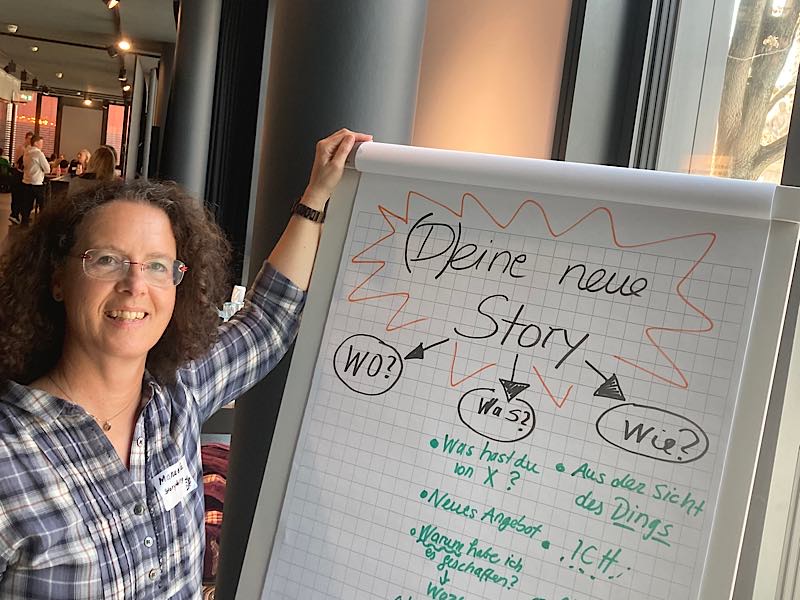 (D)eine neue
Story
WO?
Was?
Wie?
• Was hast du
von X?
• Neues Angebot
• Warum habe ich
es geschaffen?
• Aus der Sicht
des Dings
• ICH